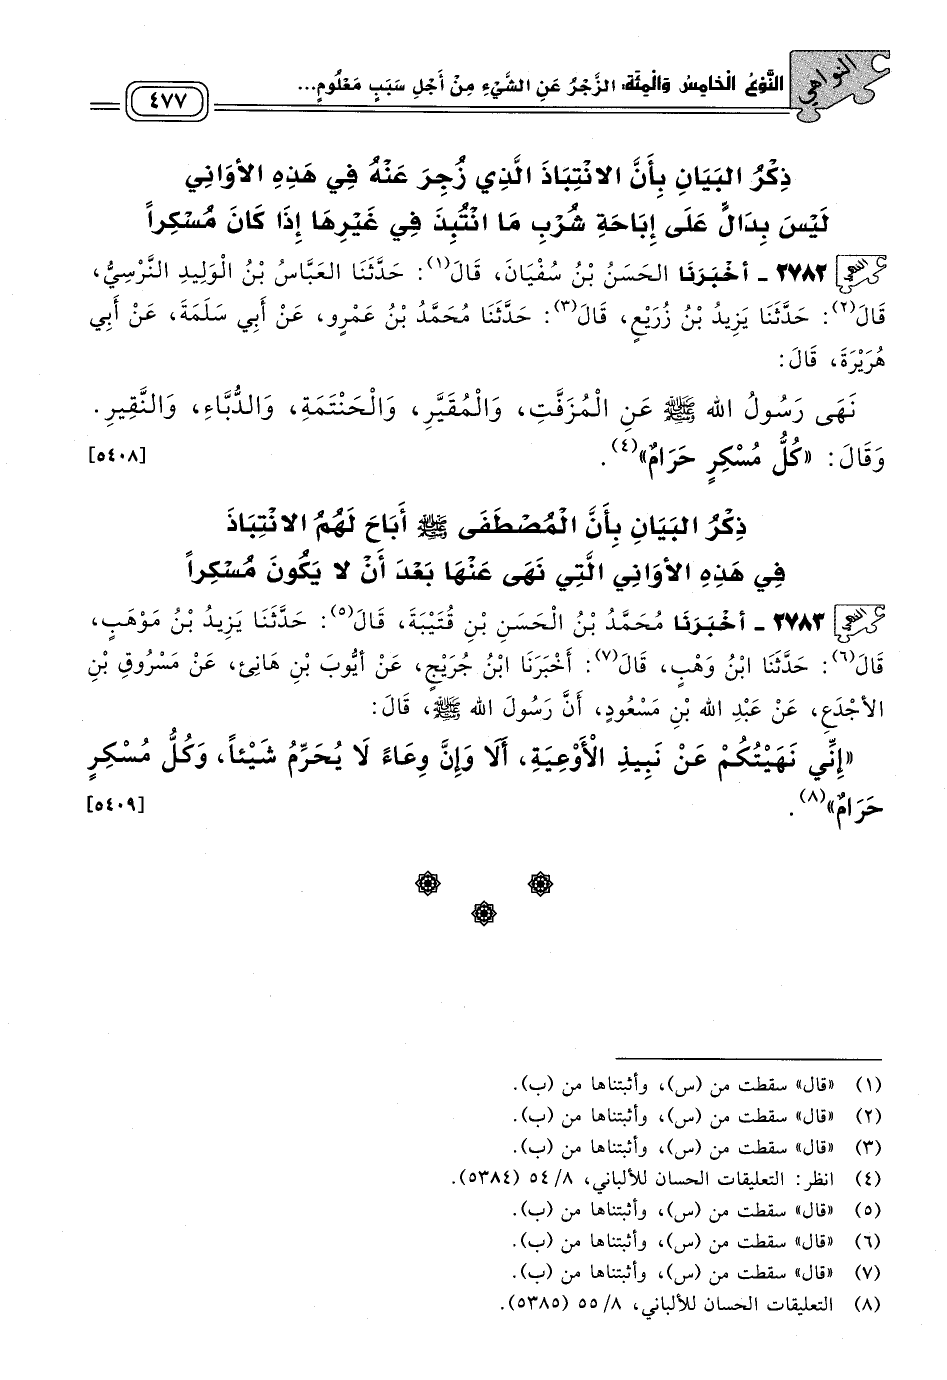 النواهي
النَّوْعُ الْخَامِسُ وَالْمِئَة: الزَّجْرُ عَنِ الشَّيْءِ مِنْ أَجْلِ سَبَبٍ مَعْلُومٍ...
٤٧٧
ذِكْرُ البَيَانِ بِأَنَّ الانْتِبَاذَ الَّذِي زُجِرَ عَنْهُ فِي هَذِهِ الأوَانِي
لَيْسَ بِدَالٍّ عَلَى إِبَاحَةِ شُرْبِ مَا انْتُبِذَ فِي غَيْرِهَا إِذَا كَانَ مُسْكِراً
٢٧٨٢ - أخْبَرَنَا الحَسَنُ بْنُ سُفْيَانَ، قَالَ(١): حَدَّثَنَا العَبَّاسُ بْنُ الْوَلِيدِ النَّرْسِيُّ،
قَالَ(٢): حَدَّثَنَا يَزِيدُ بْنُ زُرَيْعٍ، قَالَ(٣): حَدَّثَنَا مُحَمَّدُ بْنُ عَمْرٍو، عَنْ أَبِي سَلَمَةَ، عَنْ أَبِي
هُرَيْرَةَ، قَالَ:
نَهَى رَسُولُ الله ﷺ عَنِ الْمُزَفَّتِ، وَالْمُقَيَّرِ، وَالْحَنْتَمَةِ، وَالدُّبَّاءِ، وَالنَّقِيرِ.
وَقَالَ: «كُلُّ مُسْكِرٍ حَرَامٌ»(٤). [٥٤٠٨]
ذِكْرُ البَيَانِ بِأَنَّ الْمُصْطَفَى ﷺ أَبَاحَ لَهُمُ الانْتِبَاذَ
فِي هَذِهِ الأوَانِي الَّتِي نَهَى عَنْهَا بَعْدَ أَنْ لا يَكُونَ مُسْكِراً
٢٧٨٣ - أخْبَرَنَا مُحَمَّدُ بْنُ الْحَسَنِ بْنِ قُتَيْبَةَ، قَالَ(٥): حَدَّثَنَا يَزِيدُ بْنُ مَوْهَبٍ،
قَالَ(٦): حَدَّثَنَا ابْنُ وَهْبٍ، قَالَ(٧): أَخْبَرَنَا ابْنُ جُرَيْجٍ، عَنْ أَيُّوبَ بْنِ هَانِئٍ، عَنْ مَسْرُوقِ بْنِ
الأجْدَعِ، عَنْ عَبْدِ الله بْنِ مَسْعُودٍ، أَنَّ رَسُولَ الله ﷺ، قَالَ:
«إِنِّي نَهَيْتُكُمْ عَنْ نَبِيذِ الْأَوْعِيَةِ، أَلَا وَإِنَّ وِعَاءً لَا يُحَرِّمُ شَيْئاً، وَكُلُّ مُسْكِرٍ
حَرَامٌ»(٨). [٥٤٠٩]
(١) «قال» سقطت من (س)، وأثبتناها من (ب).
(٢) «قال» سقطت من (س)، وأثبتناها من (ب).
(٣) «قال» سقطت من (س)، وأثبتناها من (ب).
(٤) انظر: التعليقات الحسان للألباني، ٨/ ٥٤ (٥٣٨٤).
(٥) «قال» سقطت من (س)، وأثبتناها من (ب).
(٦) «قال» سقطت من (س)، وأثبتناها من (ب).
(٧) «قال» سقطت من (س)، وأثبتناها من (ب).
(٨) التعليقات الحسان للألباني، ٨/ ٥٥ (٥٣٨٥).